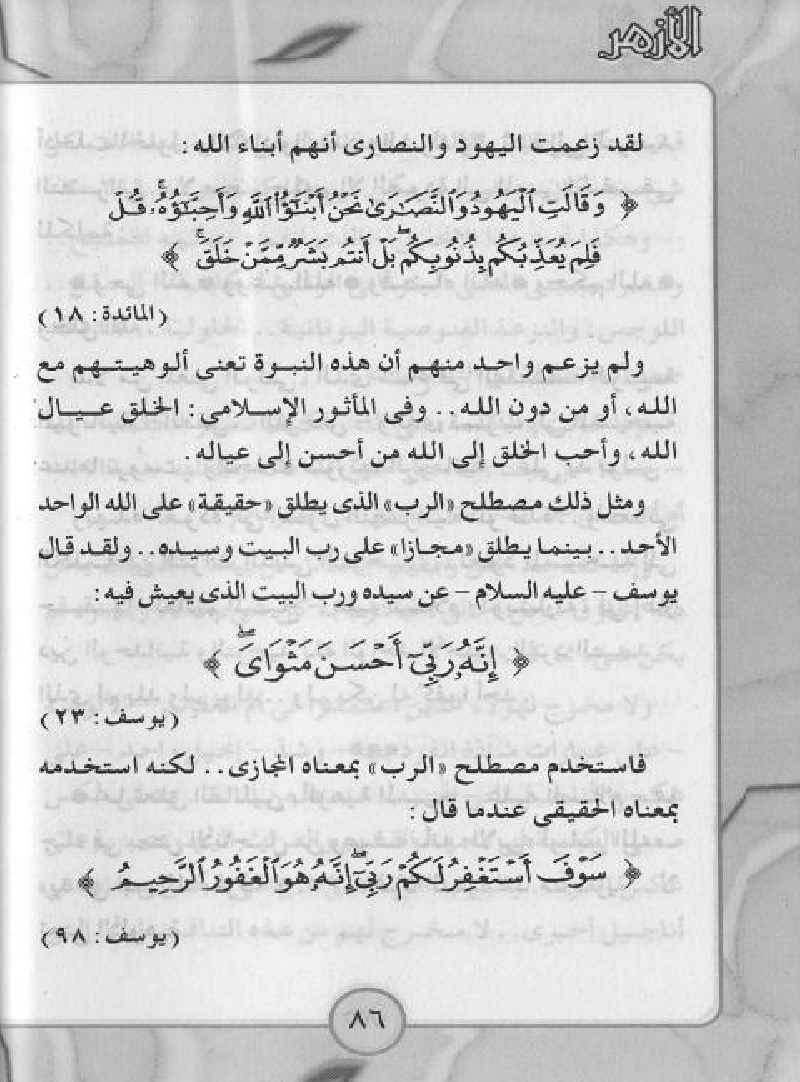 الأزهر
لقد زعمت اليهود والنصارى أنهم أبناء الله :
﴿ وَقَالَتِ ٱلْيَهُودُ وَٱلنَّصَـٰرَىٰ نَحْنُ أَبْنَـٰٓؤُا۟ ٱللَّهِ وَأَحِبَّـٰٓؤُهُۥ ۚ قُلْ
فَلِمَ يُعَذِّبُكُم بِذُنُوبِكُم ۖ بَلْ أَنتُم بَشَرٌ مِّمَّنْ خَلَقَ ۚ ﴾
(المائدة: ١٨)
ولم يزعم واحد منهم أن هذه النبوة تعنى ألوهيتهم مع
الله، أو من دون الله.. وفى المأثور الإسلامى: الخلق عيال
الله، وأحب الخلق إلى الله من أحسن إلى عياله.
ومثل ذلك مصطلح «الرب» الذى يطلق «حقيقة» على الله الواحد
الأحد.. بينما يطلق «مجازا» على رب البيت وسيده.. ولقد قال
يوسف - عليه السلام - عن سيده ورب البيت الذى يعيش فيه:
﴿ إِنَّهُۥ رَبِّىٓ أَحْسَنَ مَثْوَاىَ ۖ ﴾
(يوسف: ٢٣)
فاستخدم مصطلح «الرب» بمعناه المجازى.. لكنه استخدمه
بمعناه الحقيقى عندما قال:
﴿ سَوْفَ أَسْتَغْفِرُ لَكُمْ رَبِّىٓ ۖ إِنَّهُۥ هُوَ ٱلْغَفُورُ ٱلرَّحِيمُ ﴾
(يوسف: ٩٨)
٨٦